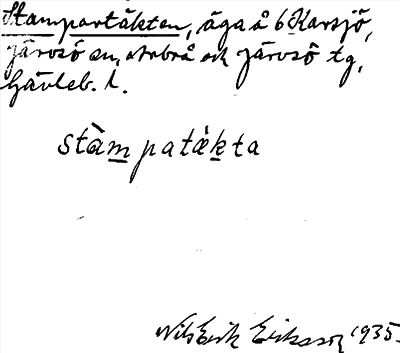 Stampartäkten, äga å 6 Karsjö,
Järvsö sn, Arbrå och Järvsö tg,
Gävleb. l.
stàm patǽkta
Nils Erik Eriksson 1935.